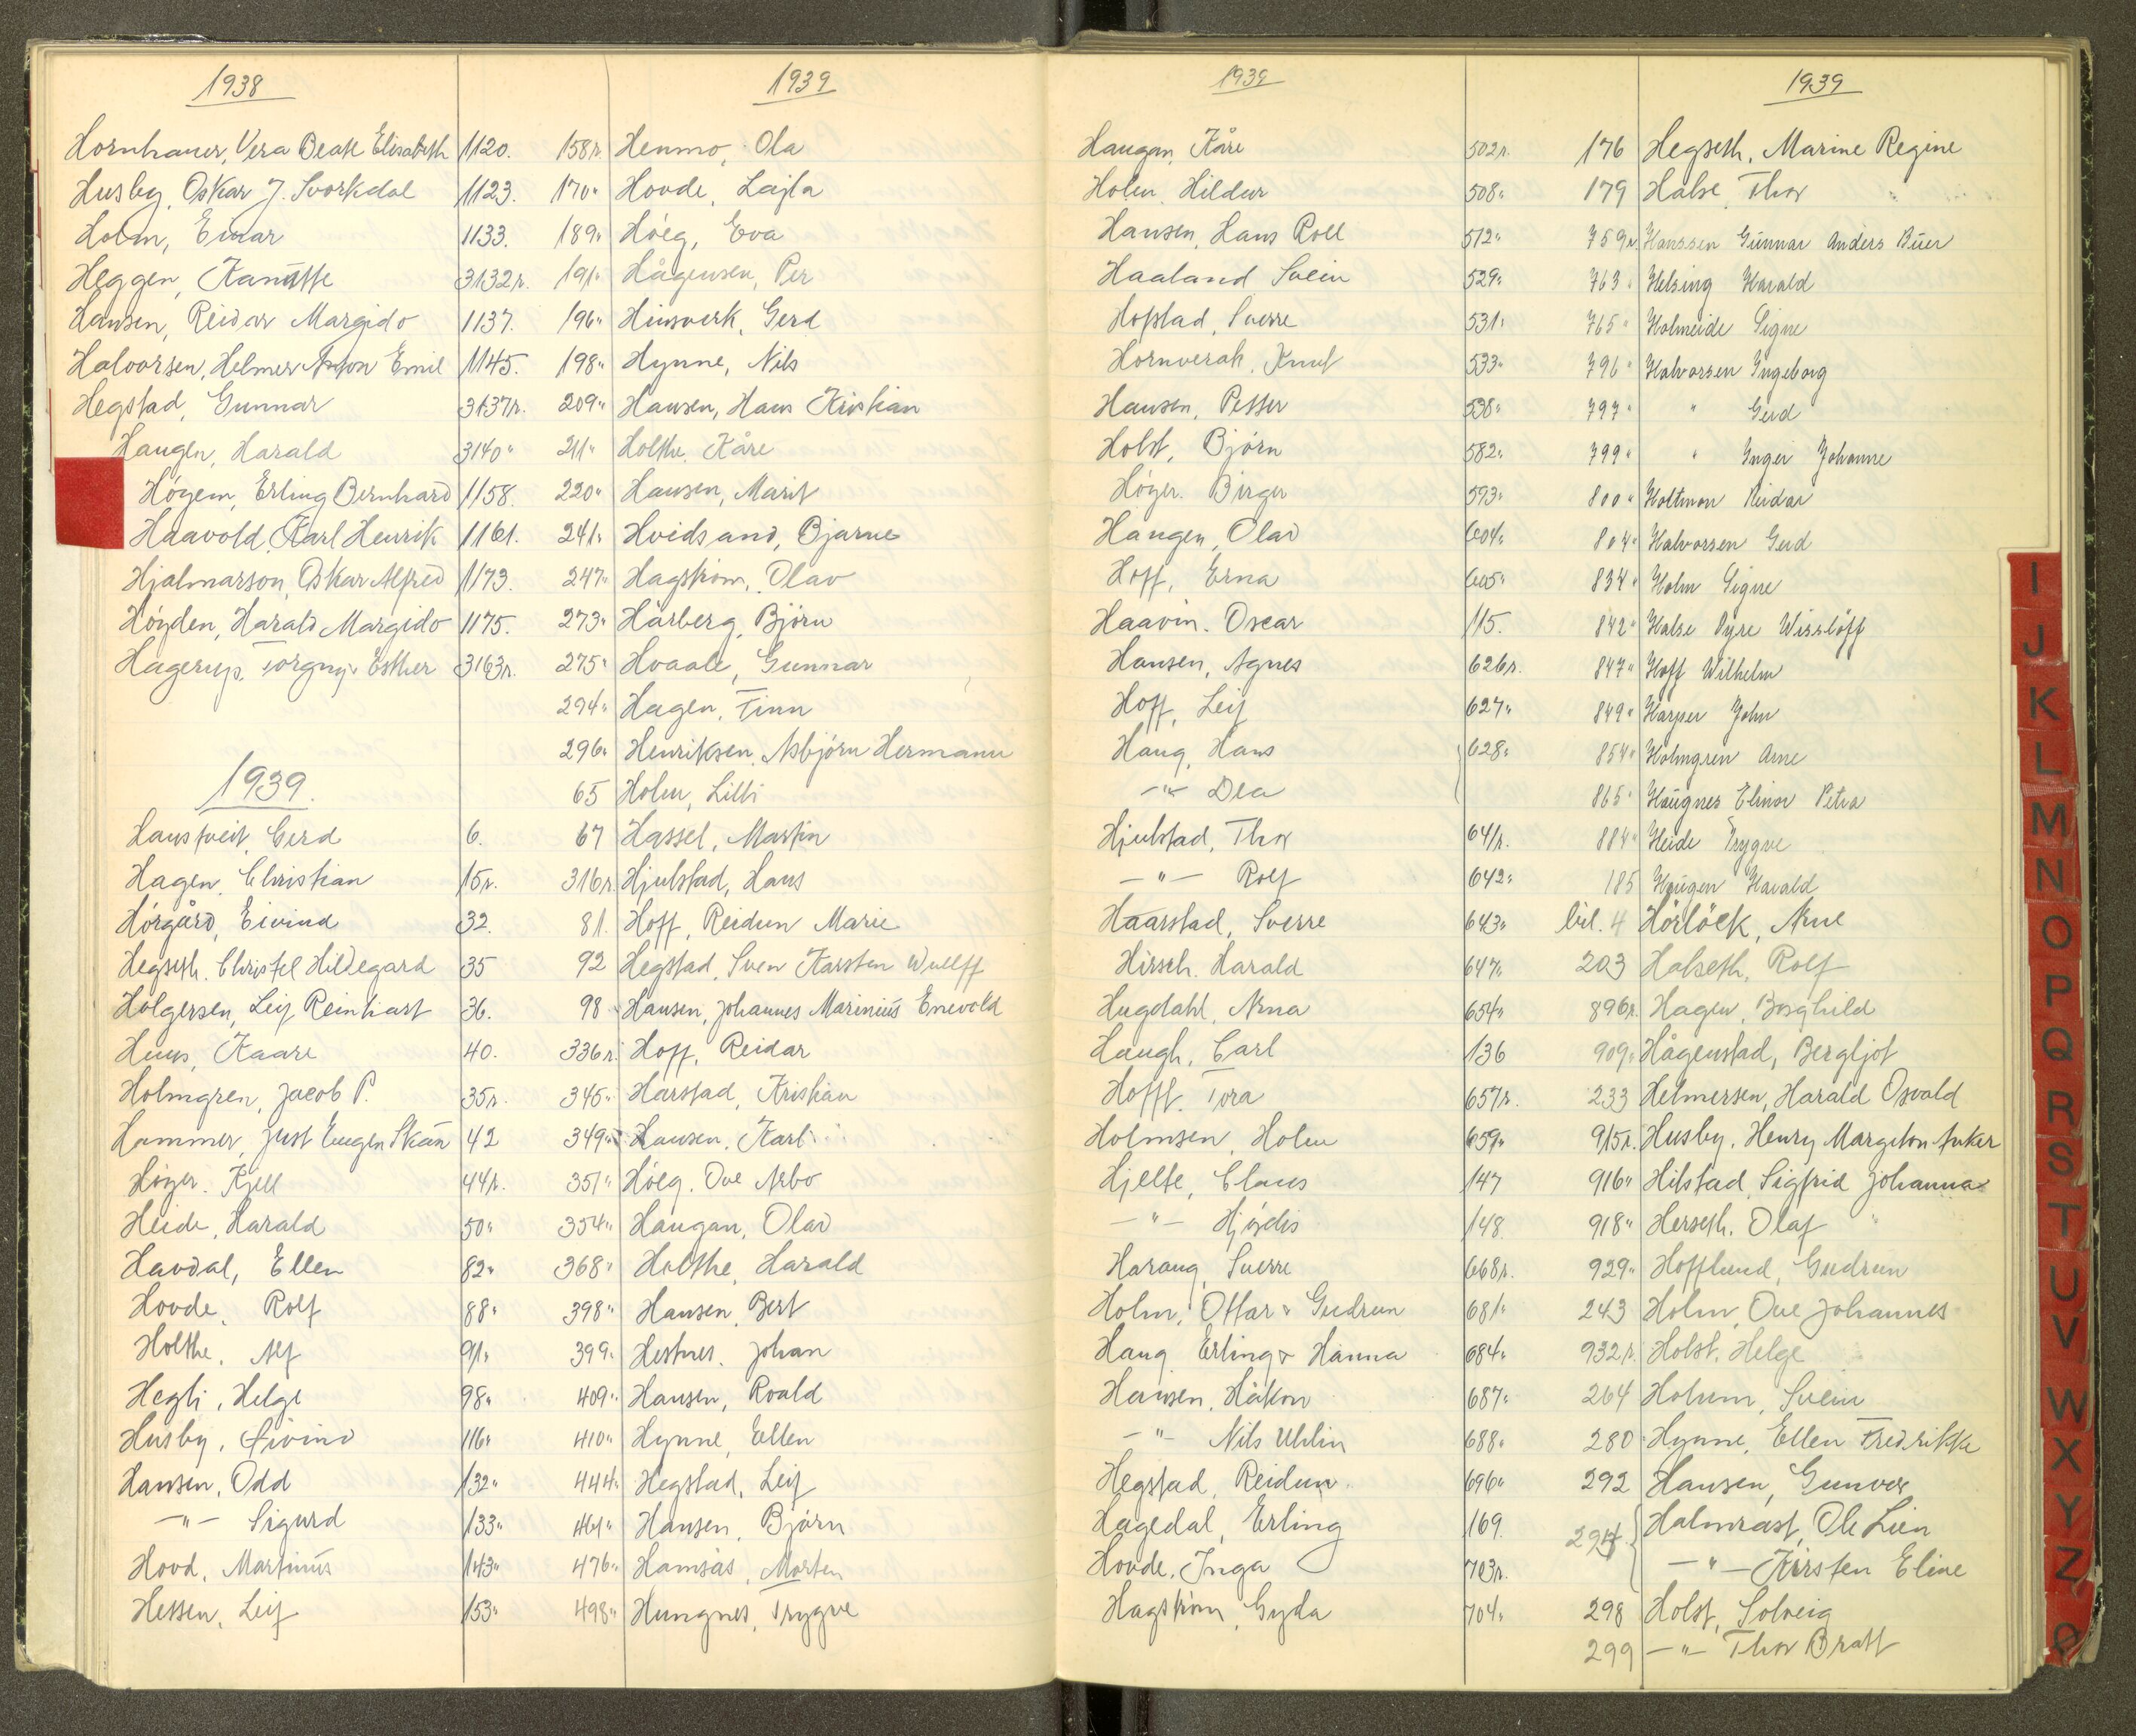 1938
Hornhauer, Vera Beate Elisabeth 1120.
Husby, Oskar J. Svorkdal 1123.
Holm, Einar 1133.
Heggen, Kanutte 3132r.
Hansen, Reidar Margido 1137.
Halvorsen, Helmer Anton Emil 1145.
Hegstad, Gunnar 3137r.
Haugen, Harald 3140"
Høyem, Erling Bernhard 1158.
Haavold, Karl Henrik 1161.
Hjalmarson, Oskar Alfred 1173.
Høyden, Harald Margido 1175.
Hagerup, Torgny & Esther 3163r.
1939.
Haustveit, Gerd 6.
Hagen, Christian 15r.
Hørgård, Eivind 32.
Hegseth, Christel Hildegard 35
Holgersen, Leif Reinhart 36.
Huus, Kaare 40.
Holmgren, Jacob P. 35r.
Hammer, Just Eugen Skan 42
Høyer, Kjell 44r.
Heide, Harald 50"
Havdal, Ellen 82"
Hovde, Rolf 88"
Holthe, Alf 91"
Hegli, Helge 98"
Husby, Eivind 116"
Hansen, Odd 132"
—"— Sigurd 133"
Hovd, Martinus 143"
Hessen, Leif 153"
1939
158r. Henmo, Ola
170" Hovde, Lajla
189" Høeg, Eva
191" Hågensen, Per
196" Hinsverk, Gerd
198" Hynne, Nils
209" Hansen, Hans Kristian
211" Holthe, Kåre
220" Hansen, Marit
241" Hvidsand, Bjarne
247" Hagstrøm, Olav
273" Hårberg, Bjørn
275" Hvaale, Gunnar
294" Hagen, Finn
296" Henriksen, Asbjørn Hermann
65 Holm, Lilli
67 Hassel, Martin
316r. Hjulstad, Hans
81. Hoff, Reidun Marie
92 Hegstad, Sven Karsten Wullff
98 Hansen, Johannes Marinius Enevold
336r. Hoff, Reidar
345" Harstad, Kristian
349" Hansen, Karl
351" Høeg, Ove Arbo
354" Haugan, Olav
368" Holthe, Harald
398" Hansen, Bert
399" Hestnes, Johan
409" Hansen, Roald
410" Hynne, Ellen
444" Hegstad, Leif
461" Hansen, Bjørn
476" Hamsås, Morten
498" Hungnes, Trygve
1939
Haugan, Kåre 502r.
Holen, Hildur 508"
Hansen, Hans Roll 512"
Haaland Svein 529"
Hofstad, Sverre 531"
Hornverak, Knut 533"
Hansen, Petter 538"
Holst, Bjørn 582"
Høyer, Birger 593"
Haugen, Olav 604"
Hoff, Erna 605"
Haavin, Oscar 115.
Hansen, Agnes 626r.
Hoff, Leif 627"
Haug, Hans 628"
—"— Dea
Hjulstad, Thor 641r.
—"— Rolf 642"
Haarstad, Sverre 643"
Hirsch, Harald 647"
Hugdahl, Arna 654"
Haugh, Carl 136
Hofft, Tora 657r.
Holmsen, Holm 659"
Hjelte, Claus 147
—"— Hjørdis 148
Haraug, Sverre 668r.
Holm, Ottar & Gudrun 681"
Haug Erling & Hanna 684"
Hansen, Håkon 687"
—"— Nils Uhlin 688"
Hegstad, Reidun 696"
Hagedal, Erling 169.
Hovde, Inga 703r.
Hagstrøm, Gyda 704"
1939
176 Hegseth, Marine Regine
179 Halse, Thor
759r. Hanssen Gunnar Anders Buer
763" Helsing Harald
765" Holmeide Signe
796" Halvorsen Ingeborg
797" " Gerd
799" " Inger Johanne
800" Holtmon Reidar
804" Halvorsen Gerd
834" Holm Signe
842" Halse Dyre Wisslöff
847" Hoff Wilhelm
849" Harper John
854" Holmgren Arne
865" Haugnes Elinor Petra
884" Heide Trygve
185 Haugen Harald
bil. 4 Hörlöck, Arne
203 Halseth, Rolf
896r. Hagen, Borghild
909" Hågenstad, Bergljot
233 Helmersen, Harald Osvald
915r. Husby, Henry Margiton Anker
916" Hilstad, Sigfrid Johanna
918" Herseth, Olaf
929" Hofflund, Gudrun
243 Holm, Ove Johannes
932r. Holst, Helge
264 Holum, Svein
280 Hynne, Ellen Fredrikke
292 Hansen, Gunvor
294 Halmrast, Ole Lien
—"— Kirsten Eline
298 Holst, Solveig
299 —"— Thor Bratt
I
J
K
L
M
N
O
P
Q
R
S
T
U
V
W
X
Y
Z
Ø